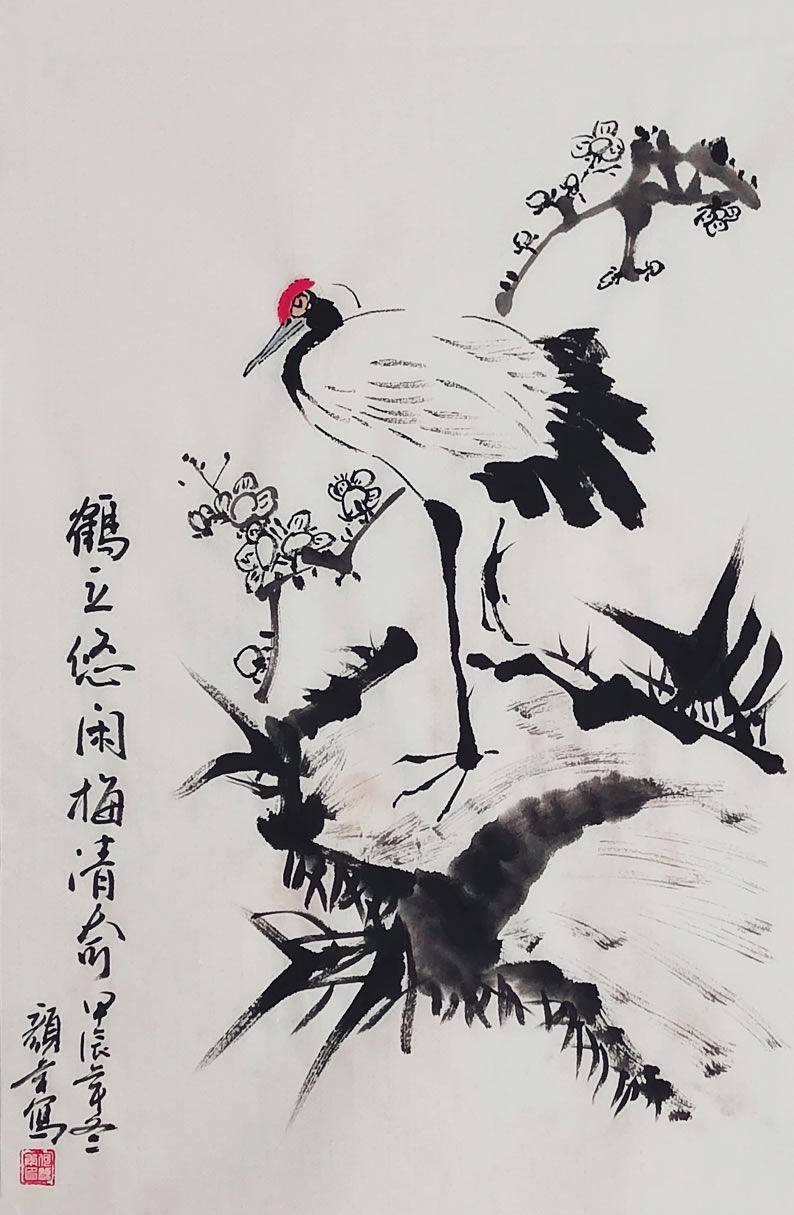 鶴立悠闲梅清奇
甲辰年冬
顏芳寫